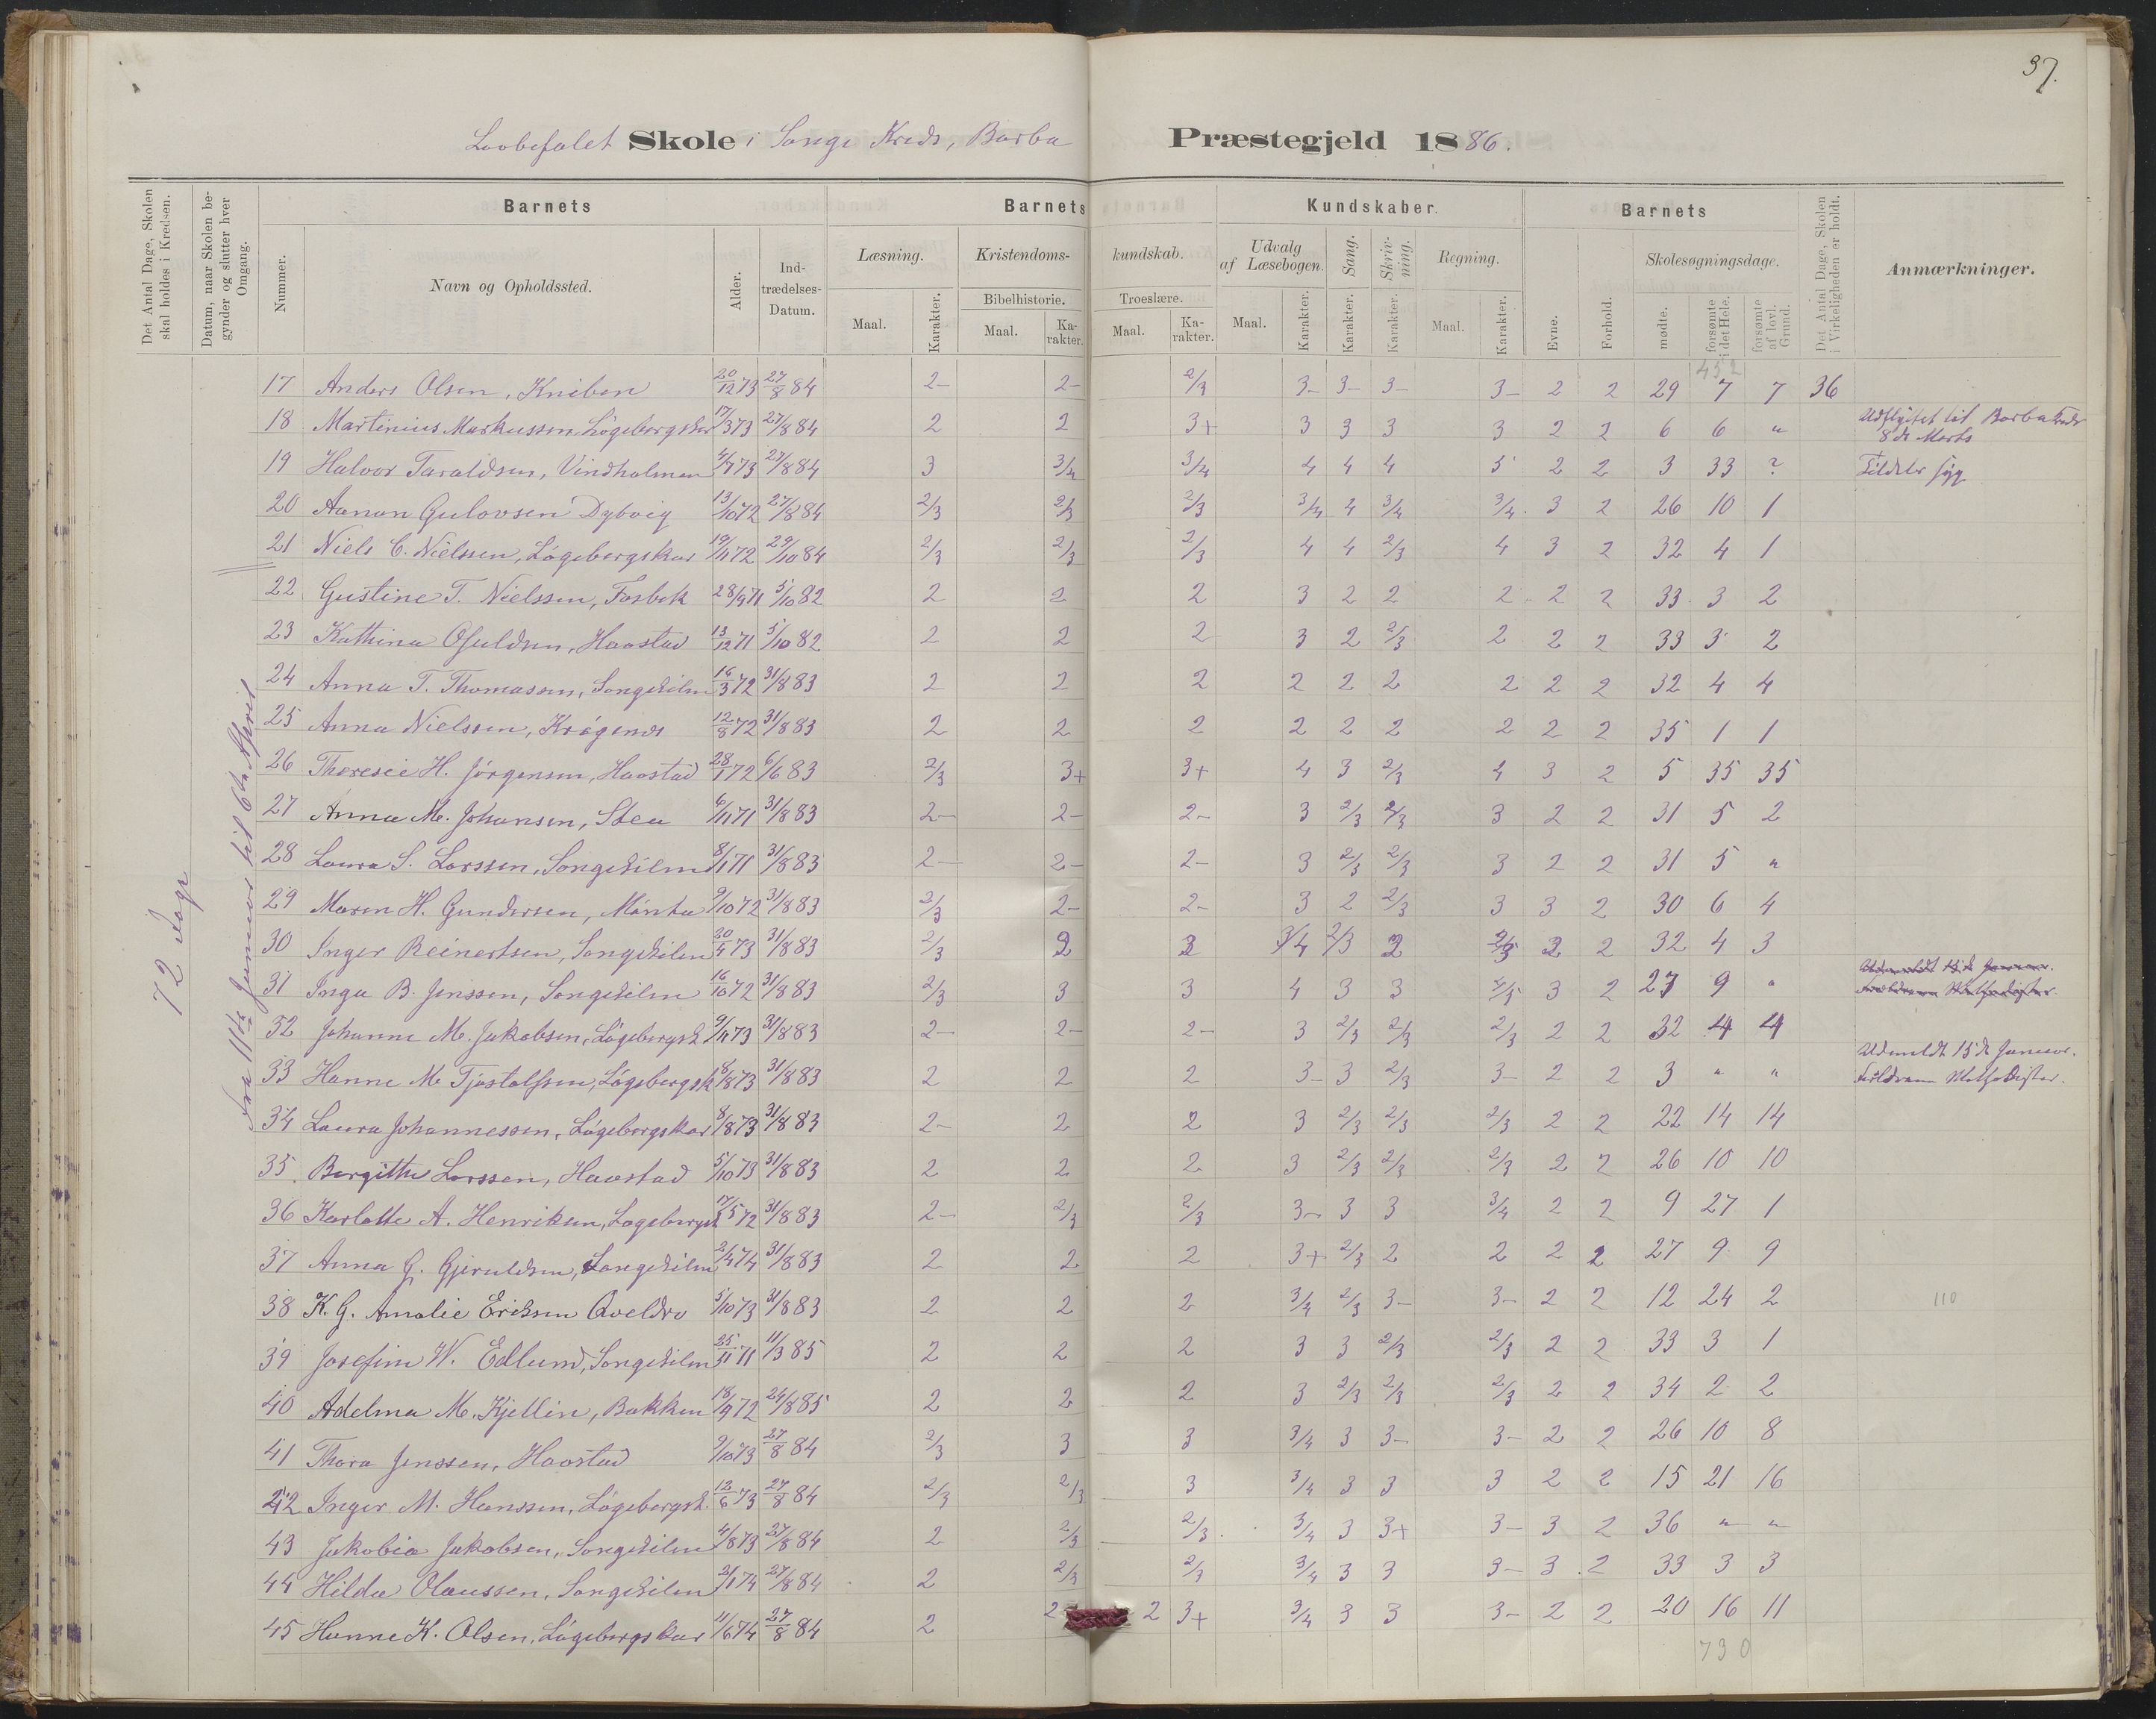 37.
Lovbefalet Skole i Songe Kreds, Barbu Præstegjeld 1886.
Det Antal Dage, Skolen skal holdes i Kredsen.
Datum, naar Skolen begynder og slutter hver Omgang.
Barnets
Nummer.
Navn og Opholdssted.
Alder.
Ind-
trædelses-
Datum.
Barnets Kundskaber.
Læsning.
Maal.
Karakter.
Kristendoms- kundskab.
Bibelhistorie.
Maal.
Ka-
rakter.
Troeslære.
Maal.
Ka-
rakter.
Udvalg
af Læsebogen.
Maal.
Karakter.
Sang.
Karakter.
Skriv-
ning.
Karakter.
Regning.
Maal.
Karakter.
Barnets
Evne.
Forhold.
Skolesøgningsdage.
mødte.
forsømte
i det Hele.
forsømte
af lovl.
Grund.
Det Antal Dage, Skolen
i Virkeligheden er holdt.
Anmærkninger.
452
72 Dage
Fra 11te Januar til 6te April
17 Anders Olsen, Kniben 20/12 73 27/8 84 2- 2- 2/3 3- 3- 3- 3- 2 2 29 7 7 36
18 Martinius Markussen, Lögebergskar 17/3 73 27/8 84 2 2 3+ 3 3 3 3 2 2 6 6 " Udflyttet til Barbu Kreds
8de Marts
19 Halvor Taraldsen, Vindholmen 4/7 73 27/8 84 3 3/4 3/4 4 4 4 5 2 2 3 33 ? Tildels syg
20 Aanon Gulovsen Dybvig 13/10 72 27/8 84 2/3 2/3 2/3 3/4 4 3/4 3/4 3 2 26 10 1
21 Niels C. Nielssen, Lögebergskar 19/11 72 29/10 84 2/3 2/3 2/3 4 4 2/3 4 3 2 32 4 1
22 Gustine T. Nielssen, Fosbæk 28/9 71 5/10 82 2 2 2 3 2 2 2 2 2 33 3 2
23 Kathina Osuldsen, Haastad 13/12 71 5/10 82 2 2 2 3 2 2/3 2 2 2 33 3 2
24 Anna T. Thomassen, Songekilen 16/3 72 31/8 83 2 2 2 2 2 2 2 2 2 32 4 4
25 Anna Nielssen, Krögenæs 12/8 72 31/8 83 2 2 2 2 2 2 2 2 2 35 1 1
26 Theresie H. Jörgensen, Haastad 28/1 72 6/6 83 2/3 3+ 3+ 4 3 2/3 4 3 2 5 35 35
27 Anna M. Johansen, Stea 6/11 71 31/8 83 2- 2- 2- 3 2/3 2/3 3 2 2 31 5 2
28 Laura S. Larssen, Songekilen 8/1 71 31/8 83 2- 2- 2- 3 2/3 2/3 3 2 2 31 5 "
29 Maren H. Gundersen, Mönta 9/10 72 31/8 83 2/3 2- 2- 3 2 2/3 3 3 2 30 6 4
30 Inger Reinertsen, Songekilen 20/4 73 31/8 83 2/3 2 2 3/4 2/3 2 2 2 32 4 3
31 Inga B. Jenssen, Songekilen 16/10 72 31/8 83 2/3 3 3 4 3 3 4/5 3 2 27 9 "
32 Johanne M. Jakobsen, Lögebergsk 9/11 73 31/8 83 2- 2- 2- 3 2/3 2/3 2/3 2 2 32 4 4
33 Hanne M. Tjøstolfsen, Lögebergsk 8/8 73 31/8 83 2 2 2 3- 3 2/3 3- 2 2 3 " " Udmeldt 15de Januar.
Forældrene Methodister.
34 Laura Johannessen, Lögebergskar 8/8 73 31/8 83 2- 2 2 3 2/3 2/3 2/3 2 2 22 14 14
35 Bergithe Larssen, Haastad 5/10 73 31/8 83 2 2 2 3 2/3 2/3 2/3 2 2 26 10 10
36 Karlotte A. Henriksen, Lögebergsk 17/5 72 31/8 83 2- 2/3 2/3 3- 3 3 3/4 2 2 9 27 1
37 Anna G. Gjeruldsen, Songekilen 2/4 74 31/8 83 2 2 2 3+ 2/3 2 2 2 2 27 9 9
38 K. G. Amalie Eriksen Qveldro 5/10 73 31/8 83 2 2 2 3/4 2/3 3- 3- 2 2 12 24 2 110
39 Josefine W. Edlund, Songekilen 25/11 71 11/3 85 2 2 2 3 3 2/3 2/3 2 2 33 3 1
40 Adelma M. Kjellin, Bakken 18/9 72 24/8 85 2 2 2 3 2/3 2/3 2/3 2 2 34 2 2
41 Thora Jenssen, Haastad 9/10 73 27/8 84 2/3 3 3 3/4 3 3- 3- 2 2 26 10 8
42 Inger M. Hanssen, Lögebergsk. 12/6 73 27/8 84 2/3 2/3 3 3/4 3 3 3 2 2 15 21 16
43 Jakobia Jakobsen, Songekilen 4/8 73 27/8 84 2 2/3 2/3 3/4 3 3+ 3- 3 2 36 " "
44 Hilda Olaussen, Songekilen 21/1 74 27/8 84 2 2/3 2/3 3/4 3 3 3- 3 2 33 3 3
45 Hanne K. Olsen, Lögebergskar 11/6 74 27/8 84 2 2 2 3+ 3/4 3 3 3- 2 2 20 16 11
730